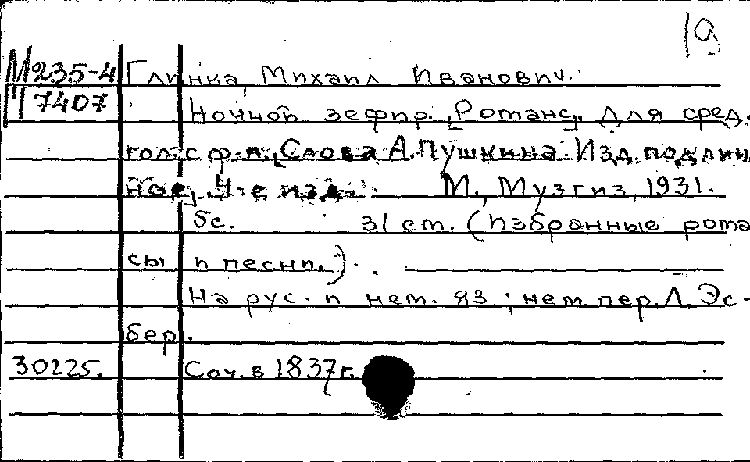 19
М235-4 Глинка, Михаил Иванович.
М 7407 Ночной зефир. [Романс]. Для сред.
гол. с ф-п., Слова А. Пушкина. Изд. подлин
ное, 4-е изд. М., Музгиз, 1931.
5с. 31 см. (Избранные рома
сы и песни.).
На рус. и нем. яз; нем. пер. Л. Эс-
бер.
30225. Соч. в 1837г.